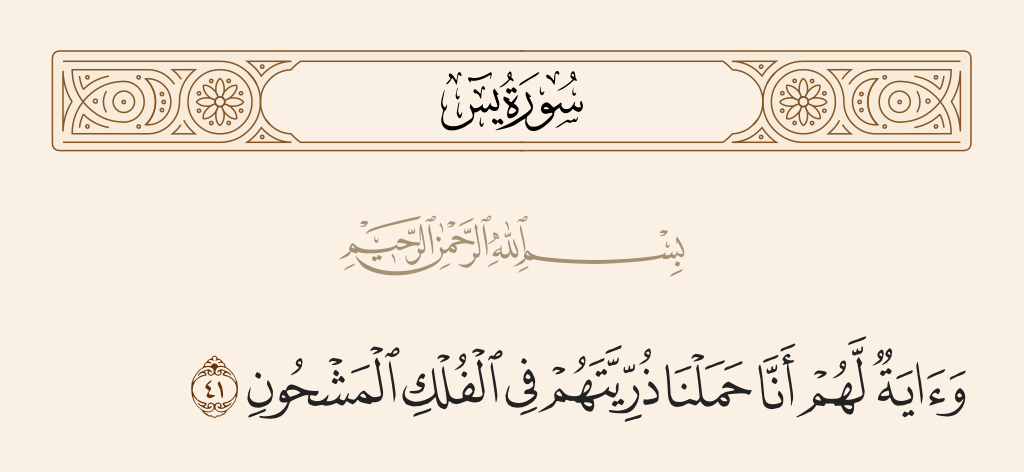 سُورَةُ يسٓ
بِسْمِ ٱللَّهِ ٱلرَّحْمَٰنِ ٱلرَّحِيمِ
وَءَايَةٌ لَّهُمْ أَنَّا حَمَلْنَا ذُرِّيَّتَهُمْ فِى ٱلْفُلْكِ ٱلْمَشْحُونِ ٤١